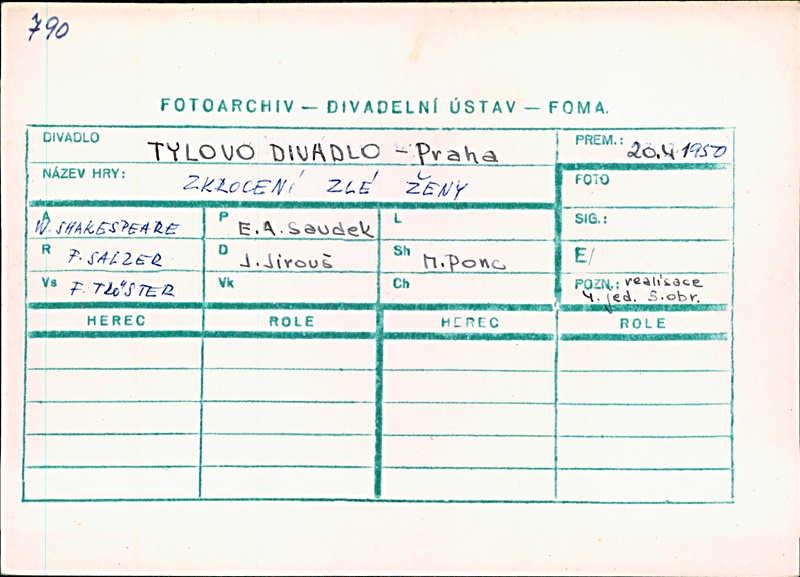 790
FOTOARCHIV — DIVADELNÍ ÚSTAV — FOMA.
DIVADLO TYLOVO DIVADLO - Praha PREM.: 20.4.1950
NÁZEV HRY: ZKROCENÍ ZLÉ ŽENY FOTO
A W. SHAKESPEARE P E.A. Saudek L SIG.:
R F. SALZER D J. Jirouš Sh M. Ponc E/
Vs F. TRÖSTER Vk Ch POZN.: realisace
4. jed. 5. obr.
HEREC ROLE HEREC ROLE